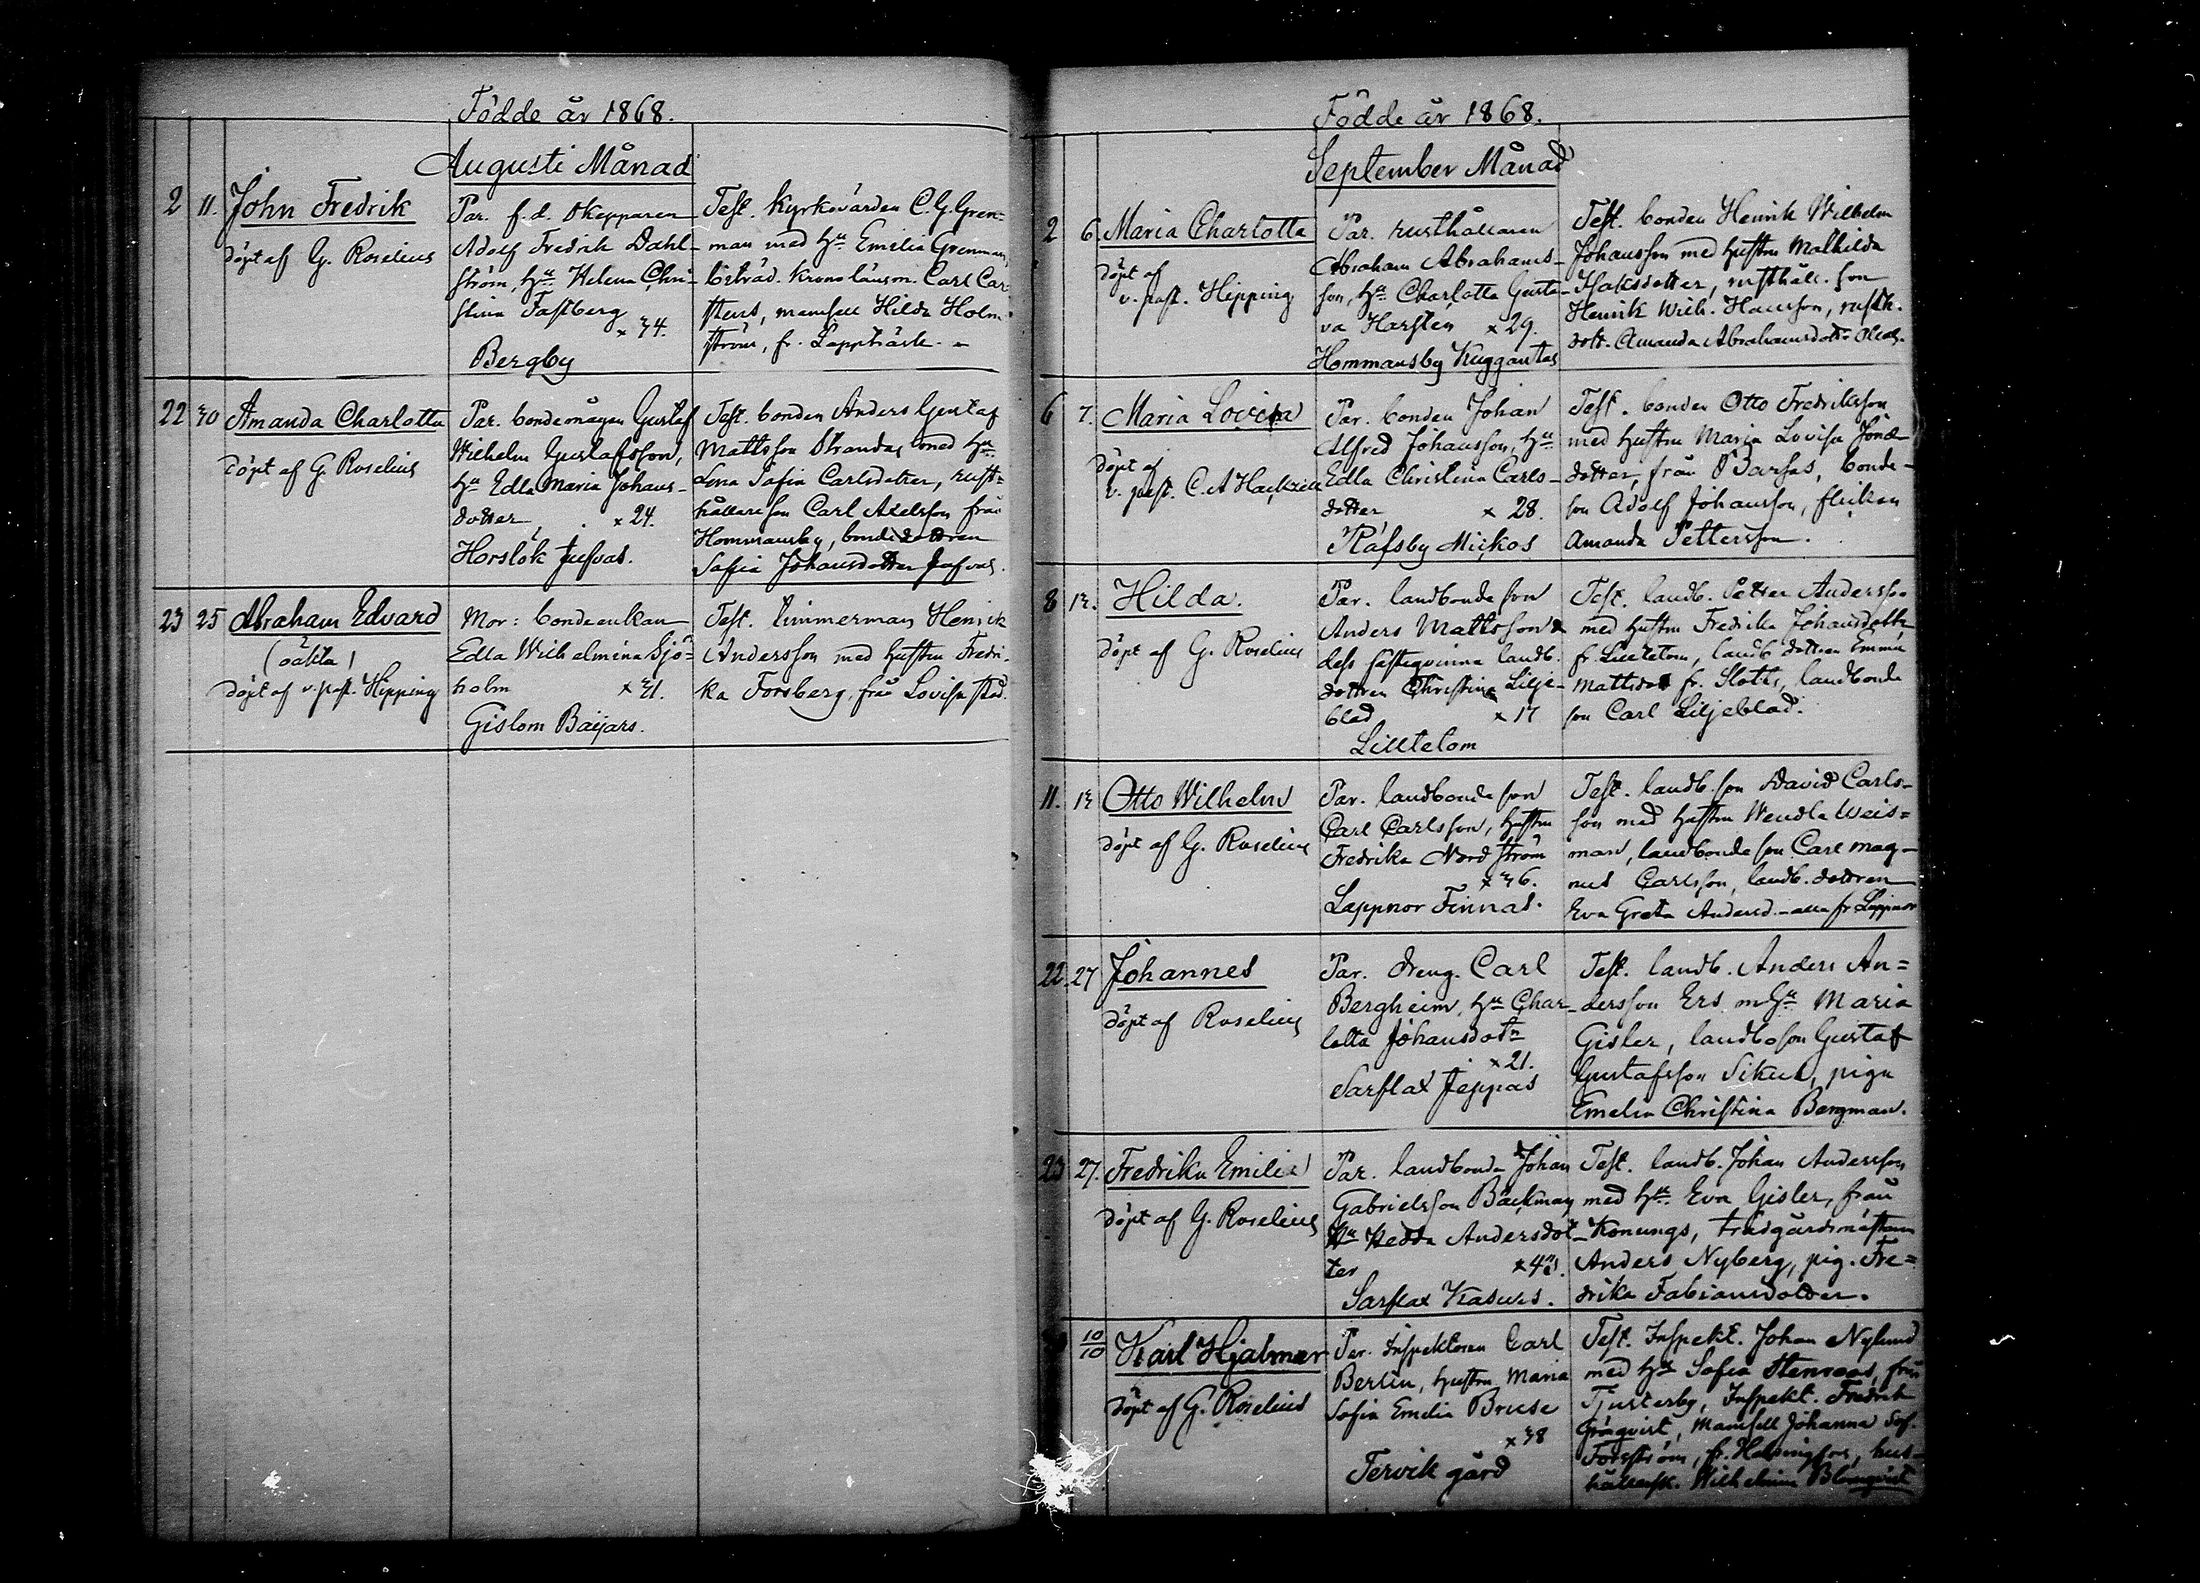 Födde år 1868.
Augusti Månad
2 11. John Fredrik
döpt af G. Roselius
Par. f.d. Skepparen
Adolf Fredrik Dahl-
ström, Hu Helena Chri-
stina Fastberg
x 34.
Bergby
Test. Kyrkovärden C.G. Gren=
man med Hu Emilia Grenman,
biträd. Kronolänsm. Carl Car-
stens, mamsell Hilda Holm-
ström, fr. Lappträsk.
22 30 Amanda Charlotta
döpt af G. Roselius
Par. bondemågen Gustaf
Wilhelm Gustafsson,
Hu Edla Maria Johans-
dotter x 24.
Horslök Jusvas.
Test. bonden Anders Gustaf
Mattsson Strandas med Hu
Lena Sofia Carlsdotter, rust=
hållareson Carl Axelsson från
Hommansby, bondedottren
Sofia Johansdotter Jusvas.
23 25 Abraham Edvard
(oäkta)
döpt af v. past. Hipping
Mor: bondeenkan
Edla Wilhelmina Sjö=
holm x 31.
Gislom Baijars.
Test. timmerman Henrik
Andersson med hustru Fredri-
ka Forsberg, från Lovisa stad.
Födde år 1868.
September Månad
2 6. Maria Charlotta
döpt af
v. past. Hipping
Par. rusthållaren
Abraham Abrahams-
son, Hu Charlotta Gusta-
va Harsten x 29.
Hommansby Kuggantas
Test. bonden Henrik Wilhelm
Johansson med hustru Mathilda
Isaksdotter, rusthåll. son
Henrik Wilh. Hansson, rusth.
dott. Amanda Abrahamsdott.
6 7. Maria Lovisa
döpt af
v. past. C. A Hackzell
Par. bonden Johan
Alfred Johansson, Hu
Edla Christina Carls-
dotter x 28.
Räfsby Mickos
Test. bonden Otto Fredriksson
med hustru Maria Lovisa Jonæ-
dotter, från Barsas, bonde-
son Adolf Johansson, flickan
Amanda Pettersson.
8 13. Hilda.
döpt af G. Roselius
Par. landbonde son
Anders Mattsson &
dess fästeqvinna landb.
dottren Christina Lilje-
blad x 17
Lilltelom
Test. landb. Petter Andersson
med hustru Fredrika Johansdotter
fr. Lilltelom, landb dottren Emma
Mattsdot fr. Slotts, landbonde
son Carl Liljeblad.
11. 13 Otto Wilhelm
döpt af G. Roselius
Par. landbonde son
Carl Carlsson, hustru
Fredrika Nordström
x 36.
Lappnor Finnas.
Test. landb. son David Carls-
son med hustru Wendla Weis=
man, landbonde son Carl Mag-
nus Carlsson, landb. dottren
Eva Greta Andersd. - alla fr Lappnor
22. 27 Johannes
döpt af Roselius
Par. dreng. Carl
Bergheim, Hu Char-
lotta Johansdotn
x 21.
Sarflax Jeppas
Test. landb. Anders An=
dersson Ers m Hu Maria
Gisler, landboson Gustaf
Gustafsson Sikus, piga
Emelia Christina Bergman.
23 27. Fredrika Emilia
döpt af G. Roselius
Par. landbonde Johan
Gabrielsson Bäckman,
Hu Hedda Andersdot-
ter x 43.
Sarflax Kasurs.
Test. landb. Johan Andersson
med Hu. Eva Gisler, från
Konungs, trädgårdsmästaren
Anders Nyberg, pig. Fre=
drika Fabiansdotter.
10/10 Karl Hjalmar
döpt af G. Roselius
Par. Inspektoren Carl
Berlin, hustru Maria
Sofia Emilia Bruse
x 38
Tervik gård
Test. Inspekt. Johan Nylund
med Hu Sofia Stenroos, från
Tjusterby, Inspekt. Fredrik
Grönqvist, Mamsell Johanna Sof.
Forsström, fr. Helsingfors, hus-
hållersk. Wilhelmina Blomqvist